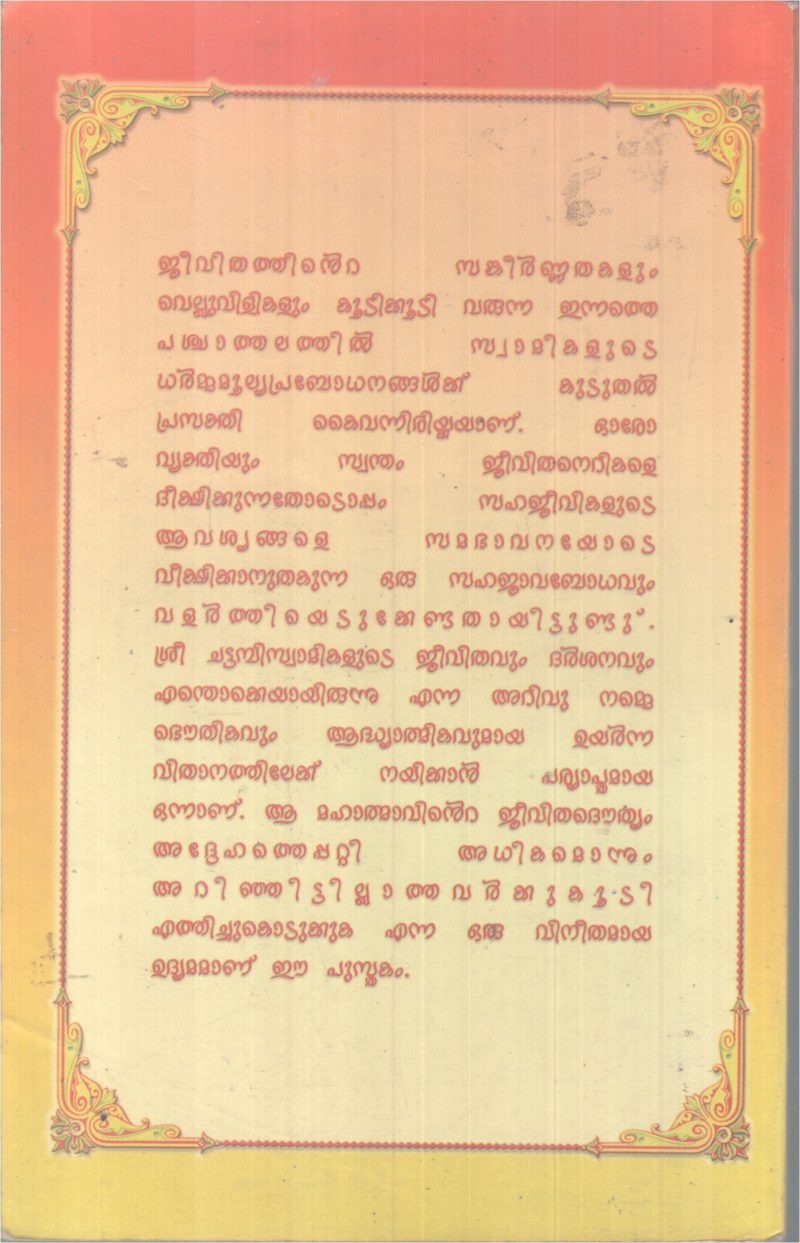 ജീവിതത്തിൻെറ സങ്കീർണ്ണതകളും
വെല്ലുവിളികളും കൂടിക്കൂടി വരുന്ന ഇന്നത്തെ
പശ്ചാത്തലത്തിൽ സ്വാമികളുടെ
ധർമ്മമൂല്യപ്രബോധനങ്ങൾക്ക് കൂടുതൽ
പ്രസക്തി കൈവന്നിരിയ്ക്കയാണ്. ഓരോ
വ്യക്തിയും സ്വന്തം ജീവിതനെറികളെ
ദീക്ഷിക്കുന്നതോടൊപ്പം സഹജീവികളുടെ
ആവശ്യങ്ങളെ സമഭാവനയോടെ
വീക്ഷിക്കാനുതകുന്ന ഒരു സഹജാവബോധവും
വളർത്തിയെടുക്കേണ്ടതായിട്ടുണ്ടു്.
ശ്രീ ചട്ടമ്പിസ്വാമികളുടെ ജീവിതവും ദർശനവും
എന്തൊക്കെയായിരുന്നു എന്ന അറിവു നമ്മെ
ഭൌതികവും ആദ്ധ്യാത്മികവുമായ ഉയർന്ന
വിതാനത്തിലേക്ക് നയിക്കാൻ പര്യാപ്തമായ
ഒന്നാണ്. ആ മഹാത്മാവിൻെറ ജീവിതദൌത്യം
അദ്ദേഹത്തെപ്പറ്റി അധികമൊന്നും
അറിഞ്ഞിട്ടില്ലാത്തവർക്കുകൂടി
എത്തിച്ചുകൊടുക്കുക എന്ന ഒരു വിനീതമായ
ഉദ്യമമാണ് ഈ പുസ്തകം.